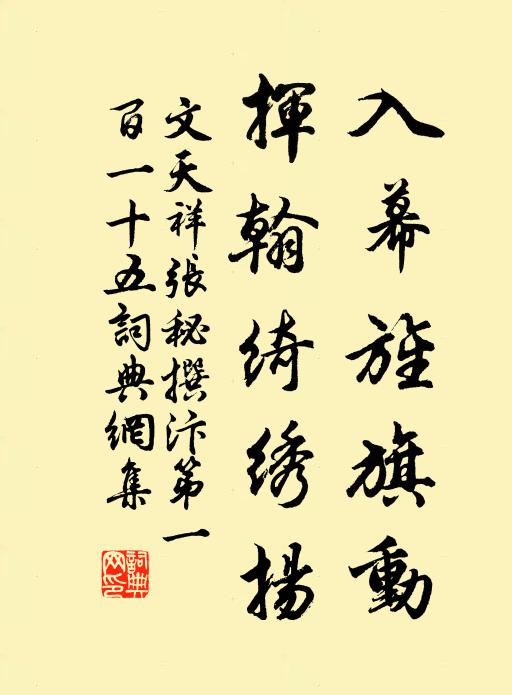 入幕旌旗動
揮翰綺綉揚
文天祥張秘撰汴第一
百一十五詞典網集
詞典網印